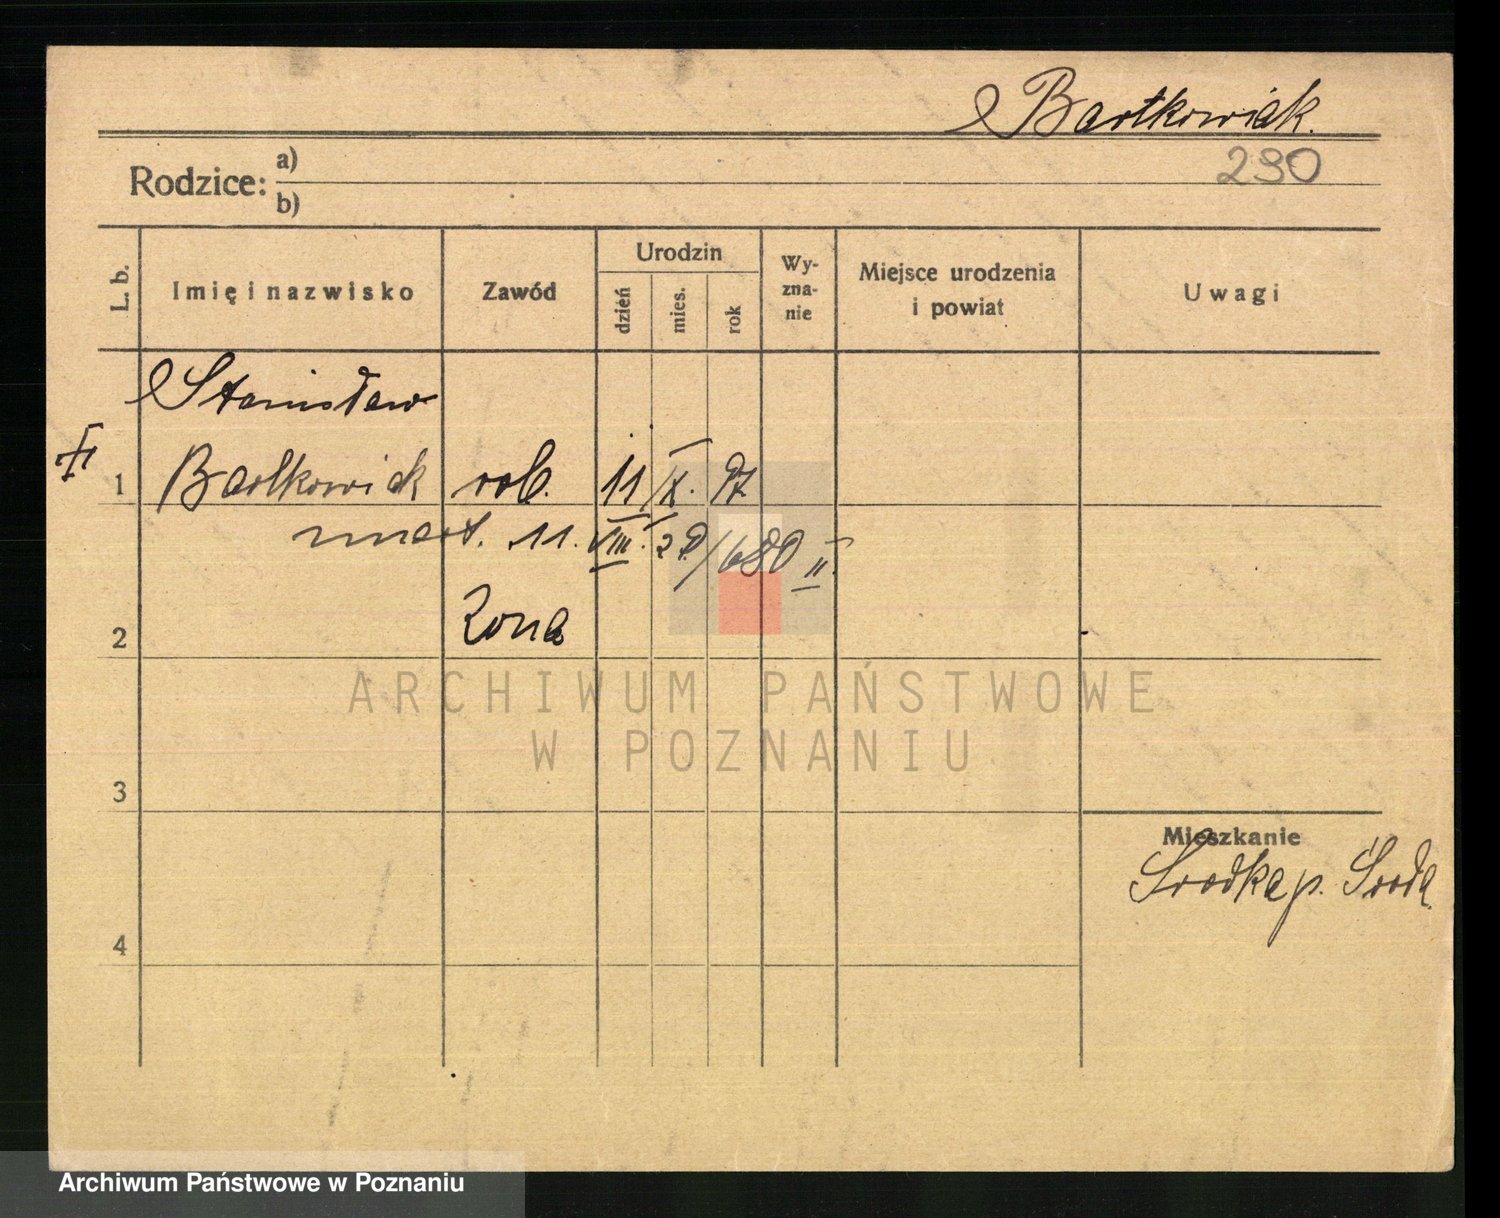 Bartkowiak.
290
Rodzice: a)
b)
L. b.
Imię i nazwisko
Zawód
Urodzin
dzień
mies.
rok
Wy-
zna-
nie
Miejsce urodzenia
i powiat
Uwagi
Stanisław
1 Bartkowiak rob. 11 IX. 97
umarł. 11. VIII. 29/680 II.
2 Żona
3
4
Mieszkanie
Środka p. Środa.
ARCHIWUM PAŃSTWOWE
W POZNANIU
Archiwum Państwowe w Poznaniu